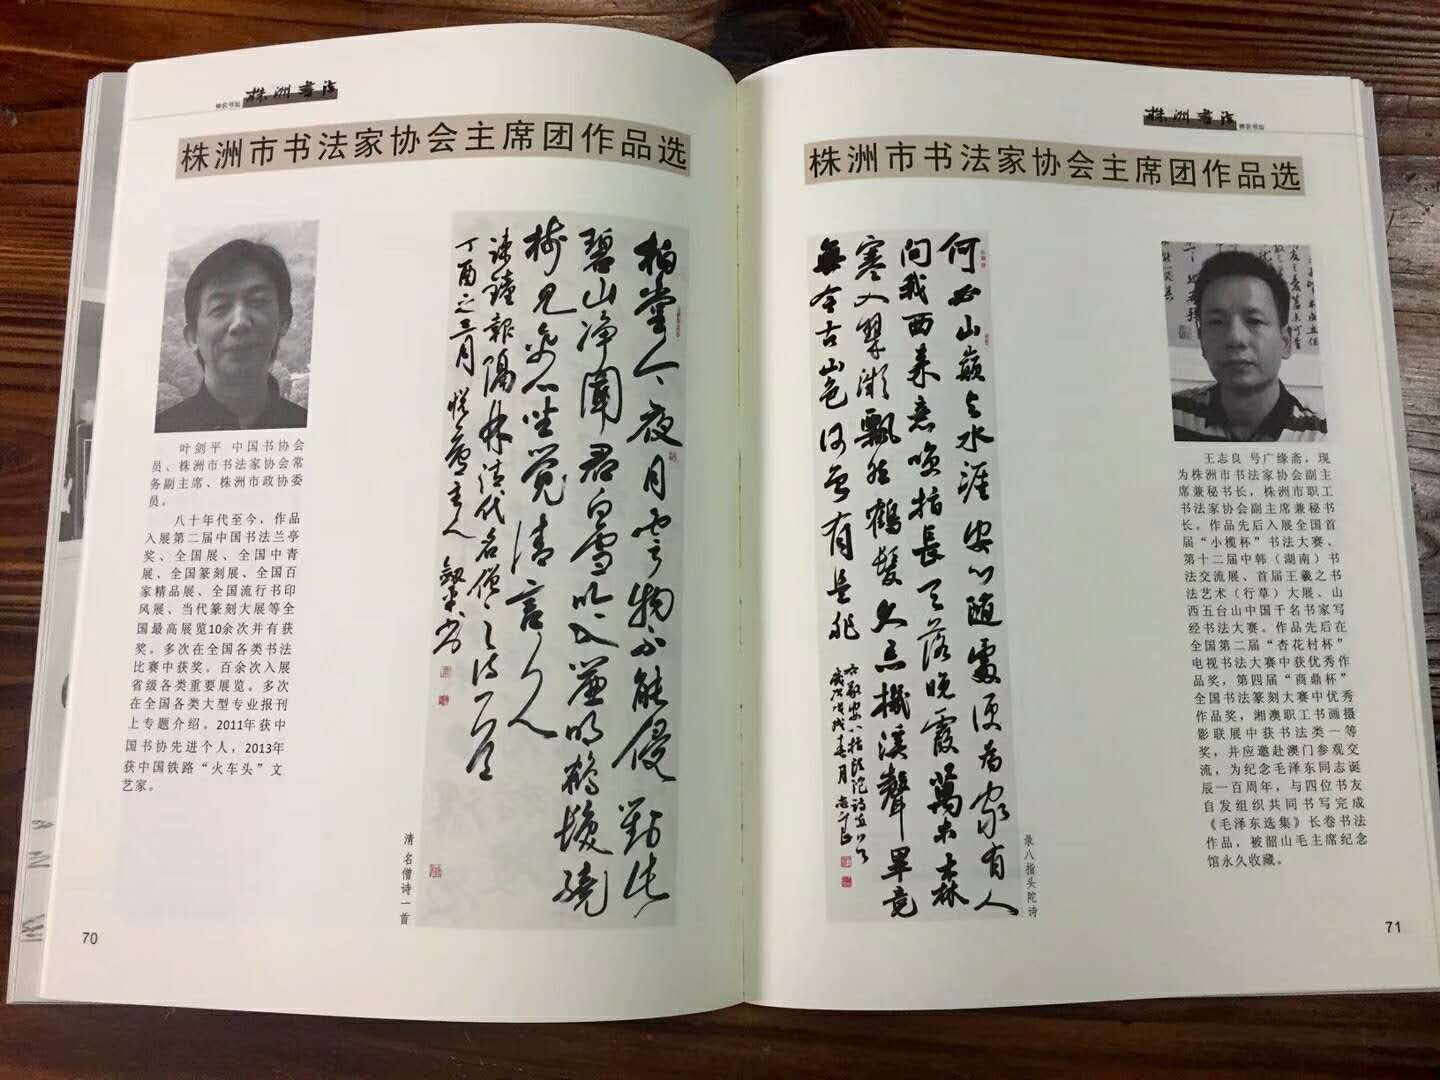 神农书坛 株洲书法
株洲市书法家协会主席团作品选
叶剑平 中国书协会
员、株洲市书法家协会常
务副主席、株洲市政协委
员。
八十年代至今，作品
入展第二届中国书法兰亭
奖、全国展、全国中青
展、全国篆刻展、全国百
家精品展、全国流行书印
风展、当代篆刻大展等全
国最高展览10余次并有获
奖。多次在全国各类书法
比赛中获奖。百余次入展
省级各类重要展览。多次
在全国各类大型专业报刊
上专题介绍。2011年获中
国书协先进个人，2013年
获中国铁路“火车头”文
艺家。
碧山净闻君白雪吟
丁酉之三月
清 名僧诗一首
70
株洲书法 神农书坛
株洲市书法家协会主席团作品选
何必山巅与水涯安心随处便为家有人
问我西来意唤指长天落晚霞万木森
寒入翠微飘然鹤发久忘机溪声毕竟
无今古山色何曾有是非
录八指头陀诗
王志良 号广缘斋，现
为株洲市书法家协会副主
席兼秘书长，株洲市职工
书法家协会副主席兼秘书
长。作品先后入展全国首
届“小榄杯”书法大赛，
第十二届中韩（湖南）书
法交流展、首届王羲之书
法艺术（行草）大展、山
西五台山中国千名书家写
经书法大赛。作品先后在
全国第二届“杏花村杯”
电视书法大赛中获优秀作
品奖，第四届“商鼎杯”
全国书法篆刻大赛中优秀
作品奖，湘澳职工书画摄
影联展中获书法类一等
奖，并应邀赴澳门参观交
流，为纪念毛泽东同志诞
辰一百周年，与四位书友
自发组织共同书写完成
《毛泽东选集》长卷书法
作品，被韶山毛主席纪念
馆永久收藏。
71